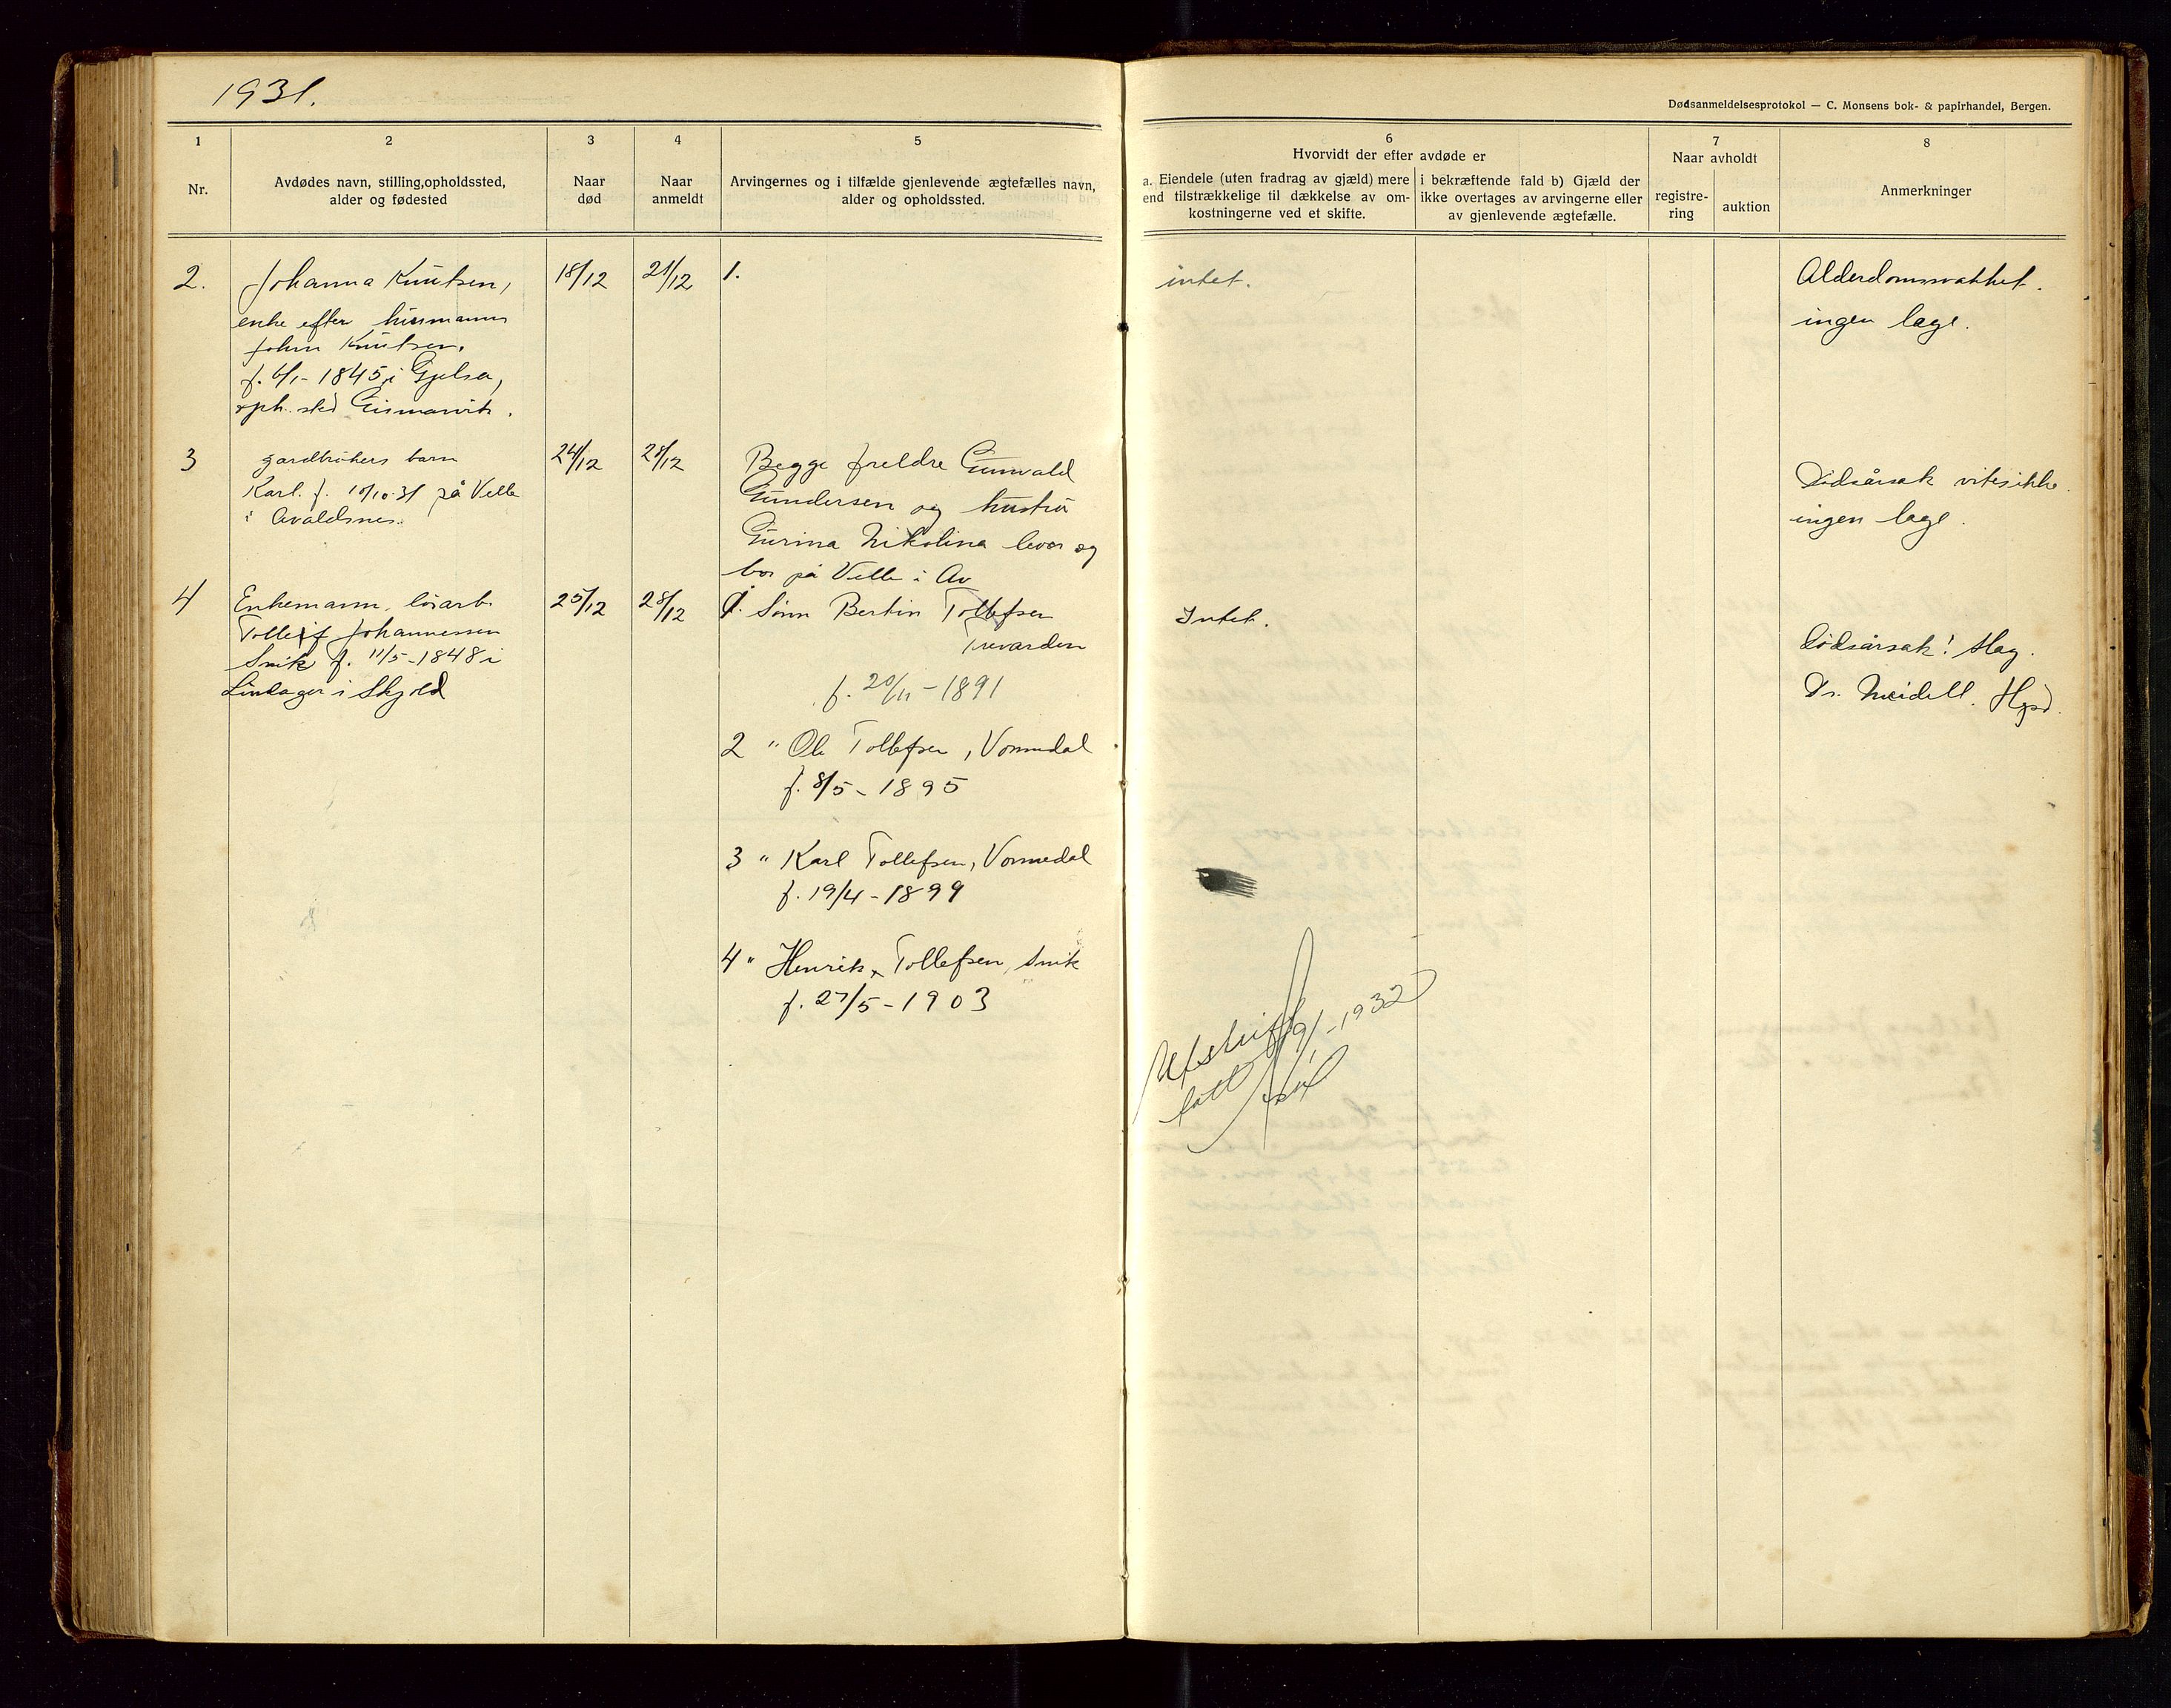 1931.
Dødsanmeldelsesprotokol — C. Monsens bok- & papirhandel, Bergen.
1
Nr.
2
Avdødes navn, stilling, opholdssted,
alder og fødested
3
Naar
død
4
Naar
anmeldt
5
Arvingernes og i tilfælde gjenlevende ægtefælles navn,
alder og opholdssted.
6
Hvorvidt der efter avdøde er
a. Eiendele (uten fradrag av gjæld) mere
end tilstrækkelige til dækkelse av om-
kostningerne ved et skifte.
i bekræftende fald b) Gjæld der
ikke overtages av arvingerne eller
av gjenlevende ægtefælle.
7
Naar avholdt
registre-
ring
auktion
8
Anmerkninger
2.
Johanna Knutsen,
enke efter husmann
John Knutsen,
f. 6/1- 1845 i Gjelsa,
oph. sted Gismarvik.
18/12
21/12
1.
intet.
Alderdomssvakhet.
ingen læge.
3
gardbrukers barn
Karl. f. 10/10.31 på Velle
i Avaldsnes.
24/12
28/12
Begge foreldre Gunvald
Gundersen og hustru
Gurina Nikolina lever og
bor på Velle i Av
Dødsårsak vites ikke.
ingen læge.
4
Enkemann, løsarb.
Tolleif Johannessen
Snik f. 11/5-1848 i
Lindager i Skjold
25/12
28/12
1. Sønn Bertin Tollefsen
f. 20/11-1891
2 " Ole Tollefsen, Vormedal
f. 8/5- 1895
3 " Karl Tollefsen, Vormedal
f. 19/4-1899
4 " Henrik Tollefsen, Snik
f. 27/5-1903
Intet.
Dødsårsak! slag.
Dr. Meidell. Hgsd.
Utskrift 9/1-1932